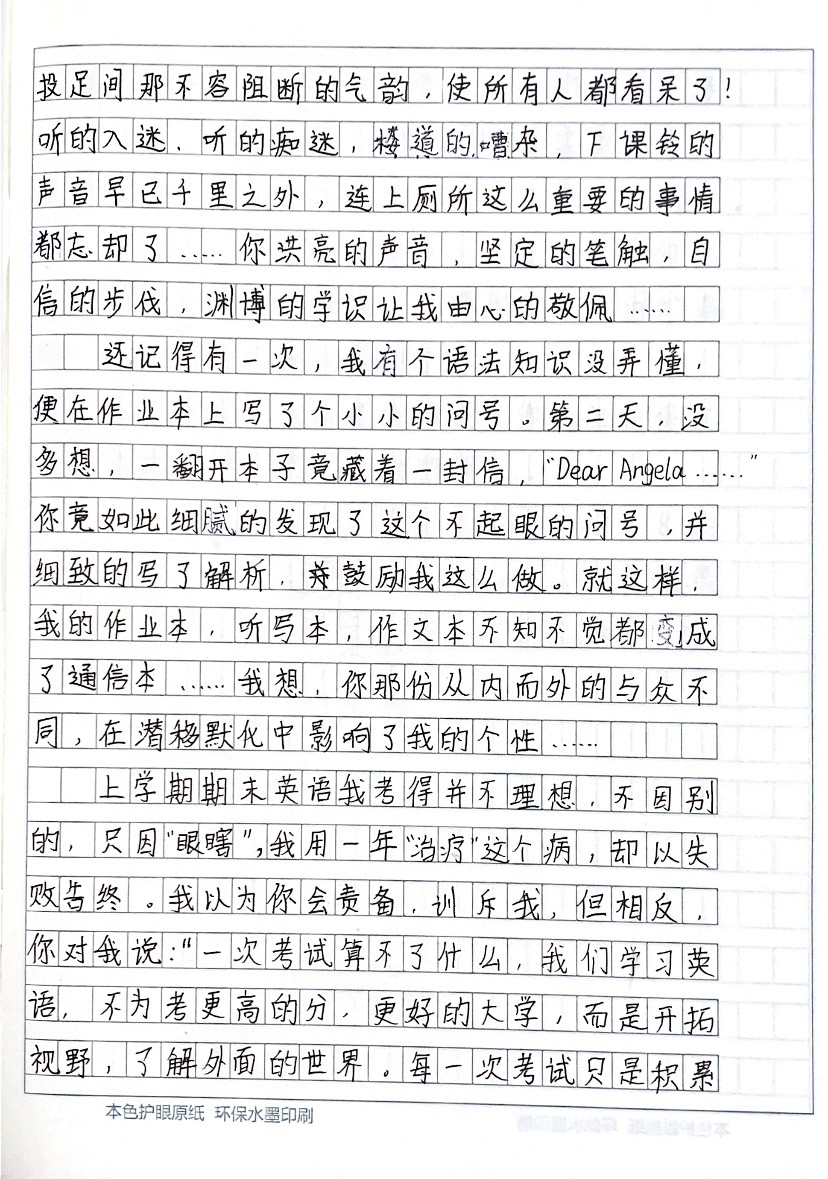 投足间那不容阻断的气韵，使所有人都看呆了！
听的入迷、听的痴迷，楼道的嘈杂，下课铃的
声音早已千里之外，连上厕所这么重要的事情
都忘却了……你洪亮的声音，坚定的笔触，自
信的步伐，渊博的学识让我由心的敬佩……
还记得有一次，我有个语法知识没弄懂，
便在作业本上写了个小小的问号。第二天，没
多想，一翻开本子竟藏着一封信，“Dear Angela……”
你竟如此细腻的发现了这个不起眼的问号，并
细致的写了解析，并鼓励我这么做。就这样，
我的作业本，听写本，作文本不知不觉都变成
了通信本……我想，你那份从内而外的与众不
同，在潜移默化中影响了我的个性……
上学期期末英语我考得并不理想，不因别
的，只因“眼瞎”，我用一年“治疗”这个病，却以失
败告终。我以为你会责备，训斥我，但相反，
你对我说：“一次考试算不了什么，我们学习英
语，不为考更高的分，更好的大学，而是开拓
视野，了解外面的世界。每一次考试只是积累
本色护眼原纸 环保水墨印刷